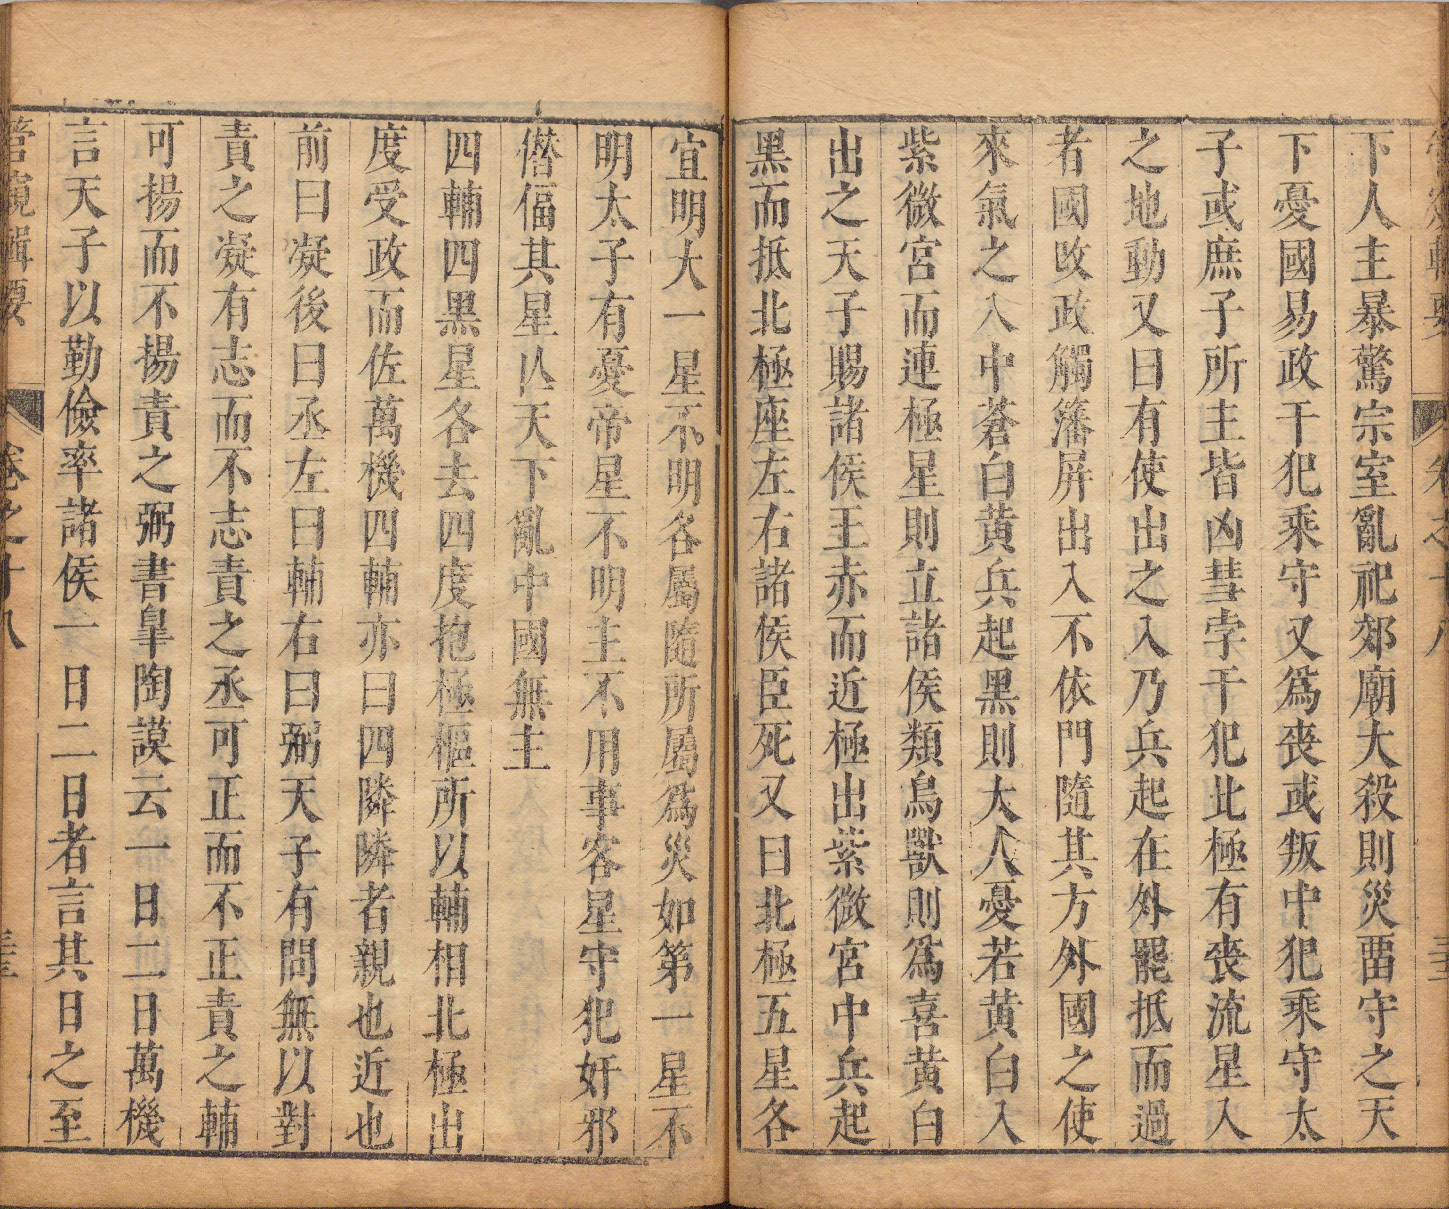 下人主暴驚宗室亂祀郊廟大殺則災畱守之天
下憂國易政干犯乘守又爲喪或叛中犯乘守太
子或庶子所主皆凶彗孛干犯北極有喪流星入
之地動又曰有使出之入乃兵起在外罷抵而過
者國敗政觸藩屏出入不依門隨其方外國之使
來氣之入中蒼白黃兵起黑則大人憂若黃白入
紫微宮而連極星則立諸侯類鳥獸則爲喜黃白
出之天子賜諸侯王赤而近極出紫微宮中兵起
黑而抵北極座左右諸侯臣死又曰北極五星各
宜明大一星不明各屬隨所屬爲災如第一星不
明太子有憂帝星不明主不用事客星守犯奸邪
僭偪其星亾天下亂中國無主
四輔四黑星各去四度抱極樞所以輔相北極出
度受政而佐萬機四輔亦曰四隣隣者親也近也
前曰凝後曰丞左曰輔右曰弼天子有問無以對
責之凝有志而不志責之丞可正而不正責之輔
可揚而不揚責之弼書臯陶謨云一日二日萬機
言天子以勤儉率諸侯一日二日者言其日之至
管窺輯要
卷之十八